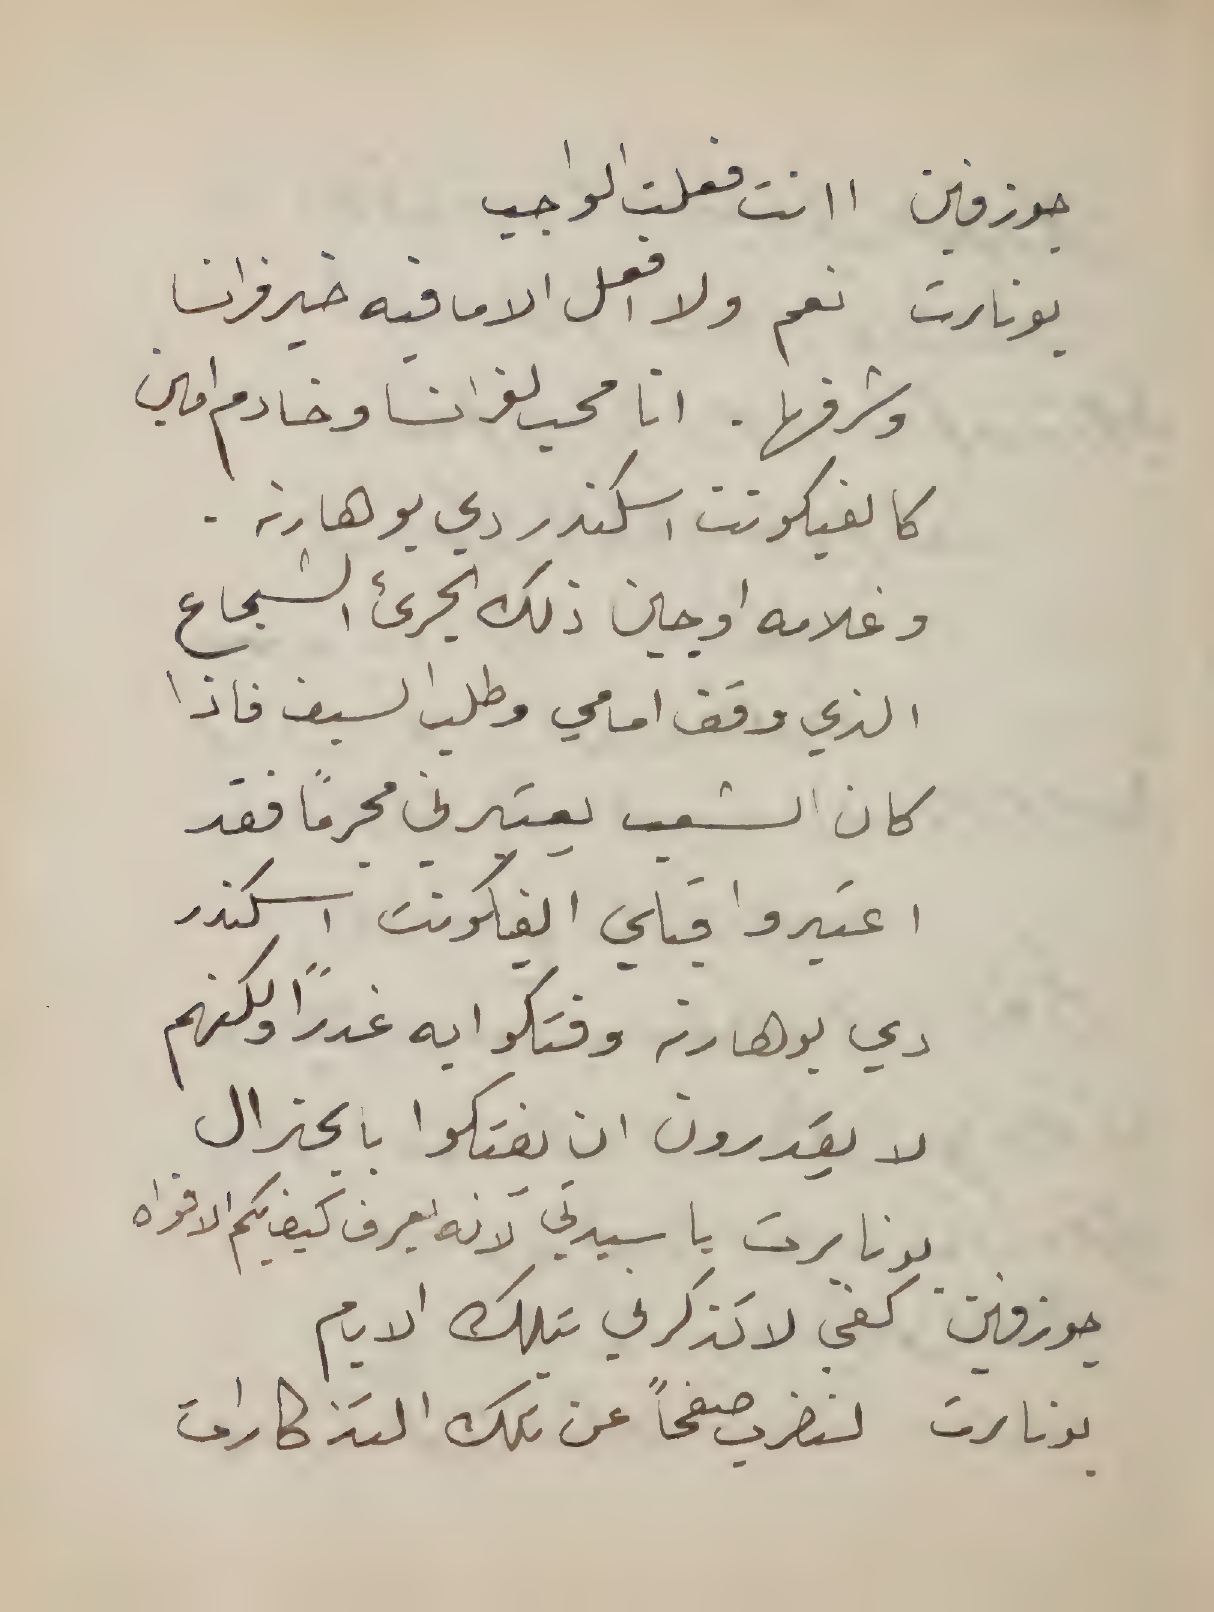 جوزفين اانت فعلت الواجب
بونابرت نعم ولا افعل الا ما فيه خير فرانسا
وشرفها . انا محب لفرانسا وخادم امين
كالفيكونت اسكندر دي بوهارنه .
وغلامه اوجين ذلك الجرئ الشجاع
الذي وقف امامي وطلب السيف فاذا
كان الشعب يعتبرني مجرمًا فقد
اعتبروا قبلي الفيكونت اسكندر
دي بوهارنه وفتكوا به غدرًا ولكنهم
لا يقدرون ان يفتكوا بالجنرال
بونابرت يا سيدتي لانه يعرف كيف يكم الافواه
جوزفين كفى لا تذكرني بتلك الايام
بونابرت لنضرب صفحاً عن تلك التذكارات